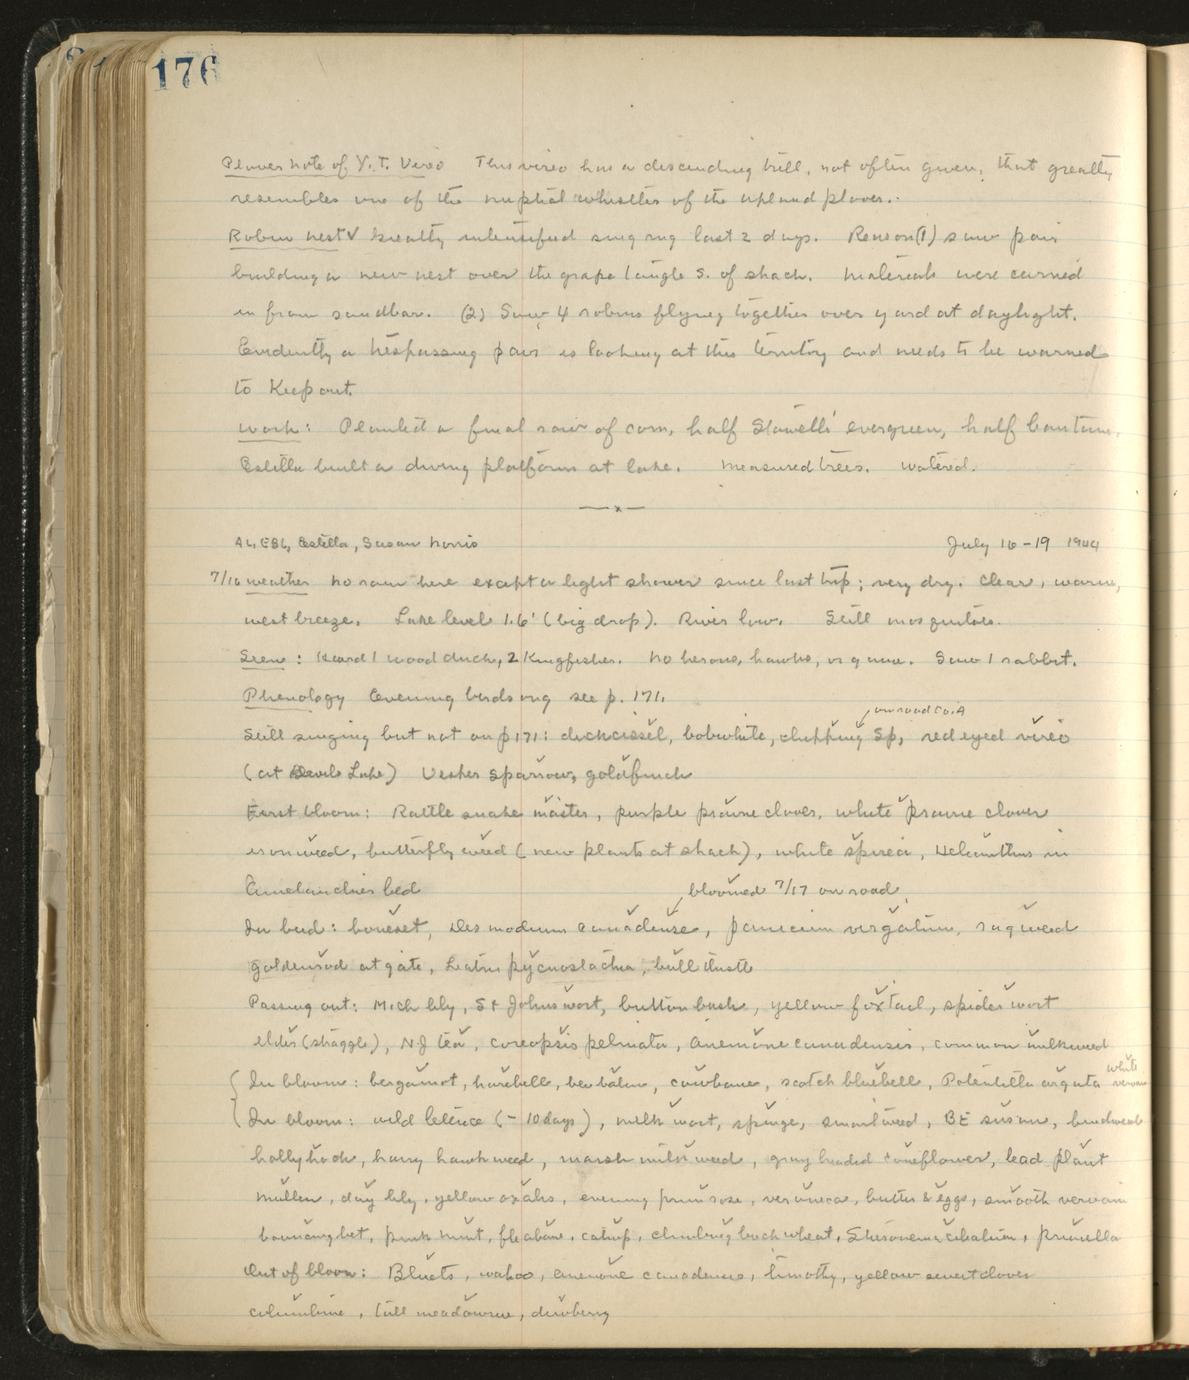 176
Plover note of Y.T. Vireo This vireo has a descending trill, not often given, that greatly
resembles one of the nuptial whistles of the upland plover.
Robin nest √ Greatly intensified singing last 2 days. Reason (1) saw pair
building a new nest over the grape tangle S. of shack. Materials were carried
in from sandbar. (2) Saw 4 robins flying together over yard at daylight.
Evidently a trespassing pair is looking at this territory and needs to be warned
to keep out.
Work: Planted a final row of corn, half Stowells' evergreen, half bantam.
Estella built a diving platform at lake. Measured trees. Watered.
—x—
AL, EBL, Estella, Susan Norris July 16-19 1944
7/16 weather No rain here except a light shower since last trip; very dry. Clear, warm,
west breeze. Lake level 1.6' (big drop). River low. Still mosquitoes.
Seen: Heard 1 wood duck, 2 Kingfisher. No herons, hawks, or grouse. Saw 1 rabbit.
Phenology Evening birdsong see p. 171.
on road Co. A
Still singing but not on p 171: dickcissel, bobwhite, chipping sp, red eyed vireo
(at Devils Lake) Vesper sparrow, goldfinch
First bloom: Rattle snake master, purple prairie clover, white prairie clover
ironweed, butterfly weed (new plants at shack), white spirea, Helianthus in
Amelanchier bed bloomed 7/17 on road
In bud: boneset, Desmodium canadense, panicum virgatum, ragweed
goldenrod at gate, Liatris pycnostachia, bull thistle
Passing out: Mich lily, St Johnswort, button bush, yellow foxtail, spiderwort
elder (straggle), N.J. tea, coreopsis palmata, Anemone canadensis, common milkweed
In bloom: bergamot, harebell, bee balm, cowbane, scotch bluebell, Potentilla arguta white vervain
In bloom: wild lettuce (-10 days), milkwort, spurge, smartweed, BE susan, bindweed
hollyhock, hairy hawkweed, marsh milkweed, gray headed coneflower, lead plant
mullein, day lily, yellow oxalis, evening primrose, veronica, butter & eggs, smooth vervain
bouncing bet, punk mint, fleabane, catnip, climbing buckwheat, Steironema ciliatum, prunella
Out of bloom: Bluets, wahoo, anemone canadensis, timothy, yellow sweet clover
columbine, tall meadowrue, dewberry